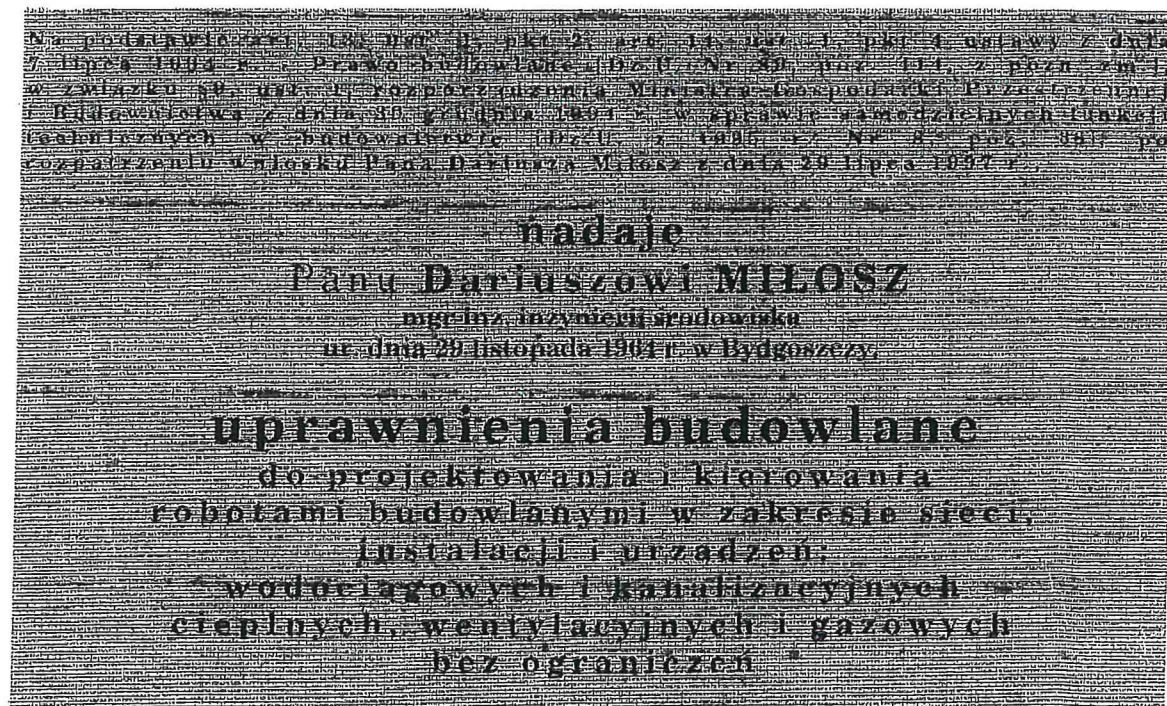 Na podstawie art. 13, ust. pkt 2, art. 14, ust. 1, pkt 4 ustawy z dnia
7 lipca 1994 r. Prawo budowlane (Dz.U. Nr 89, poz. 414, z późn. zm.)
w związku ust. 1, rozporządzenia Ministra Gospodarki Przestrzennej
i Budownictwa z dnia 30 grudnia 1994 r. w sprawie samodzielnych funkcji
technicznych w budownictwie (Dz.U. z 1995 r. Nr 8, poz. 38) po
rozpatrzeniu wniosku Pana Dariusza Miłosz z dnia 29 lipca 1997 r.
nadaję
Panu Dariuszowi MIŁOSZ
mgr inż. inżynierii środowiska
ur. dnia 29 listopada 1964 r. w Bydgoszczy,
uprawnienia budowlane
do projektowania i kierowania
robotami budowlanymi w zakresie sieci,
instalacji i urządzeń:
wodociągowych i kanalizacyjnych
cieplnych, wentylacyjnych i gazowych
bez ograniczeń